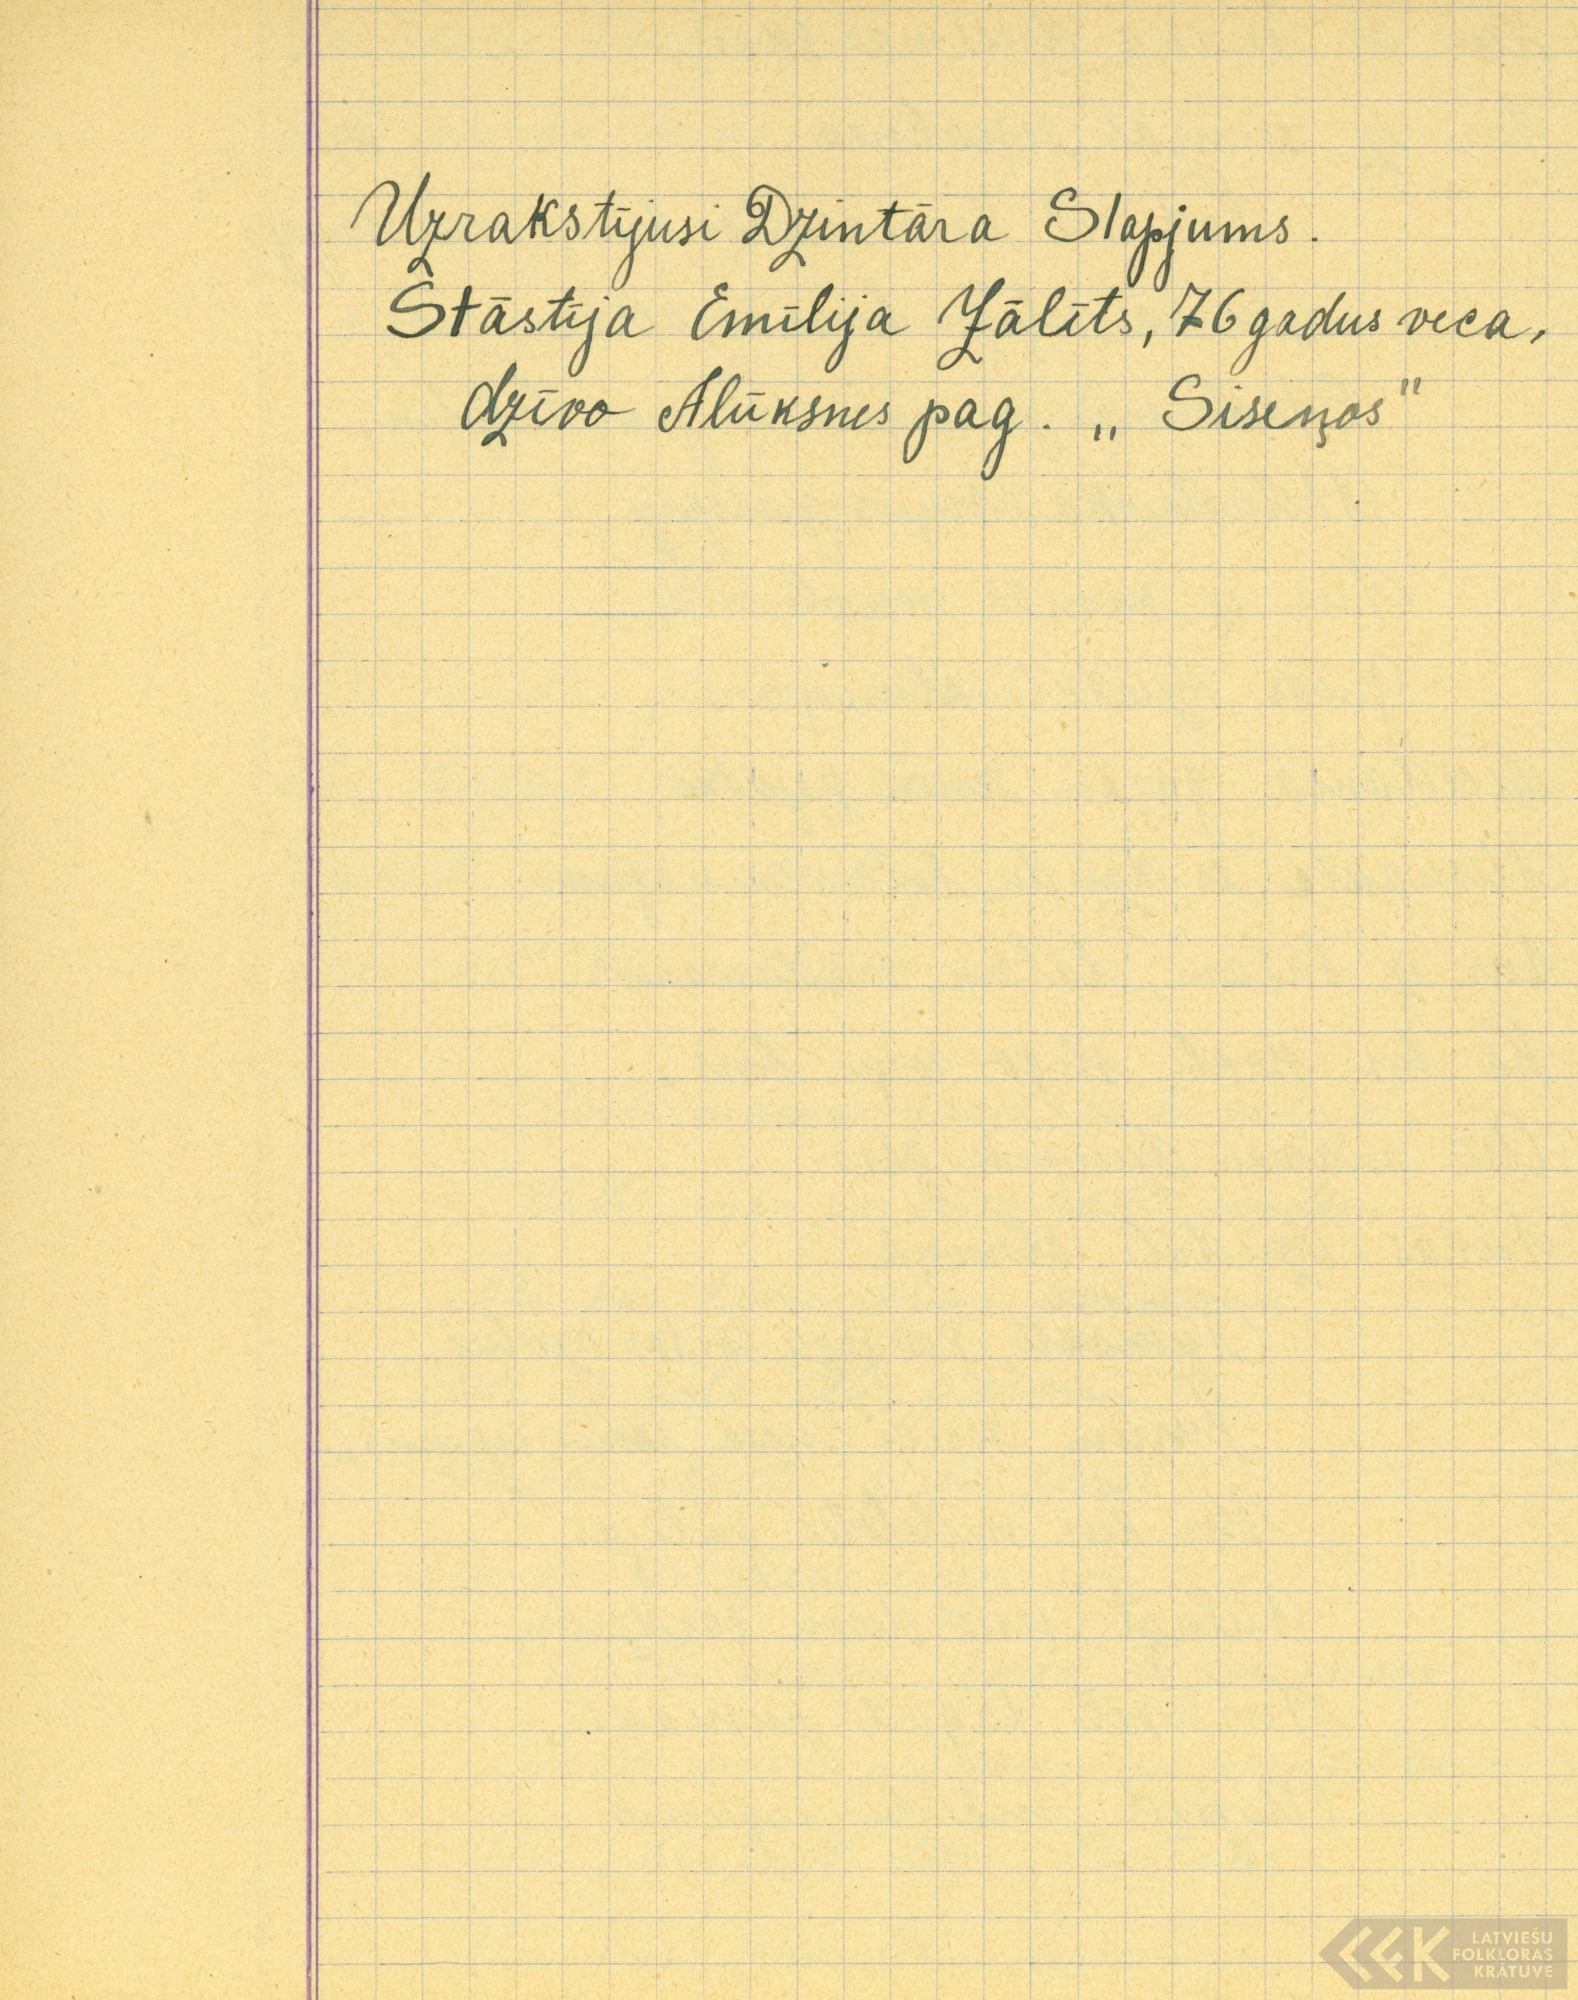 Uzrakstījusi Dzintāra Slapjums.
Stāstīja Emīlija Zālīts, 76 gadus veca,
dzīvo Alūksnes pag. „Siseņos"
LATVIEŠU
FOLKLORAS
KRĀTUVE